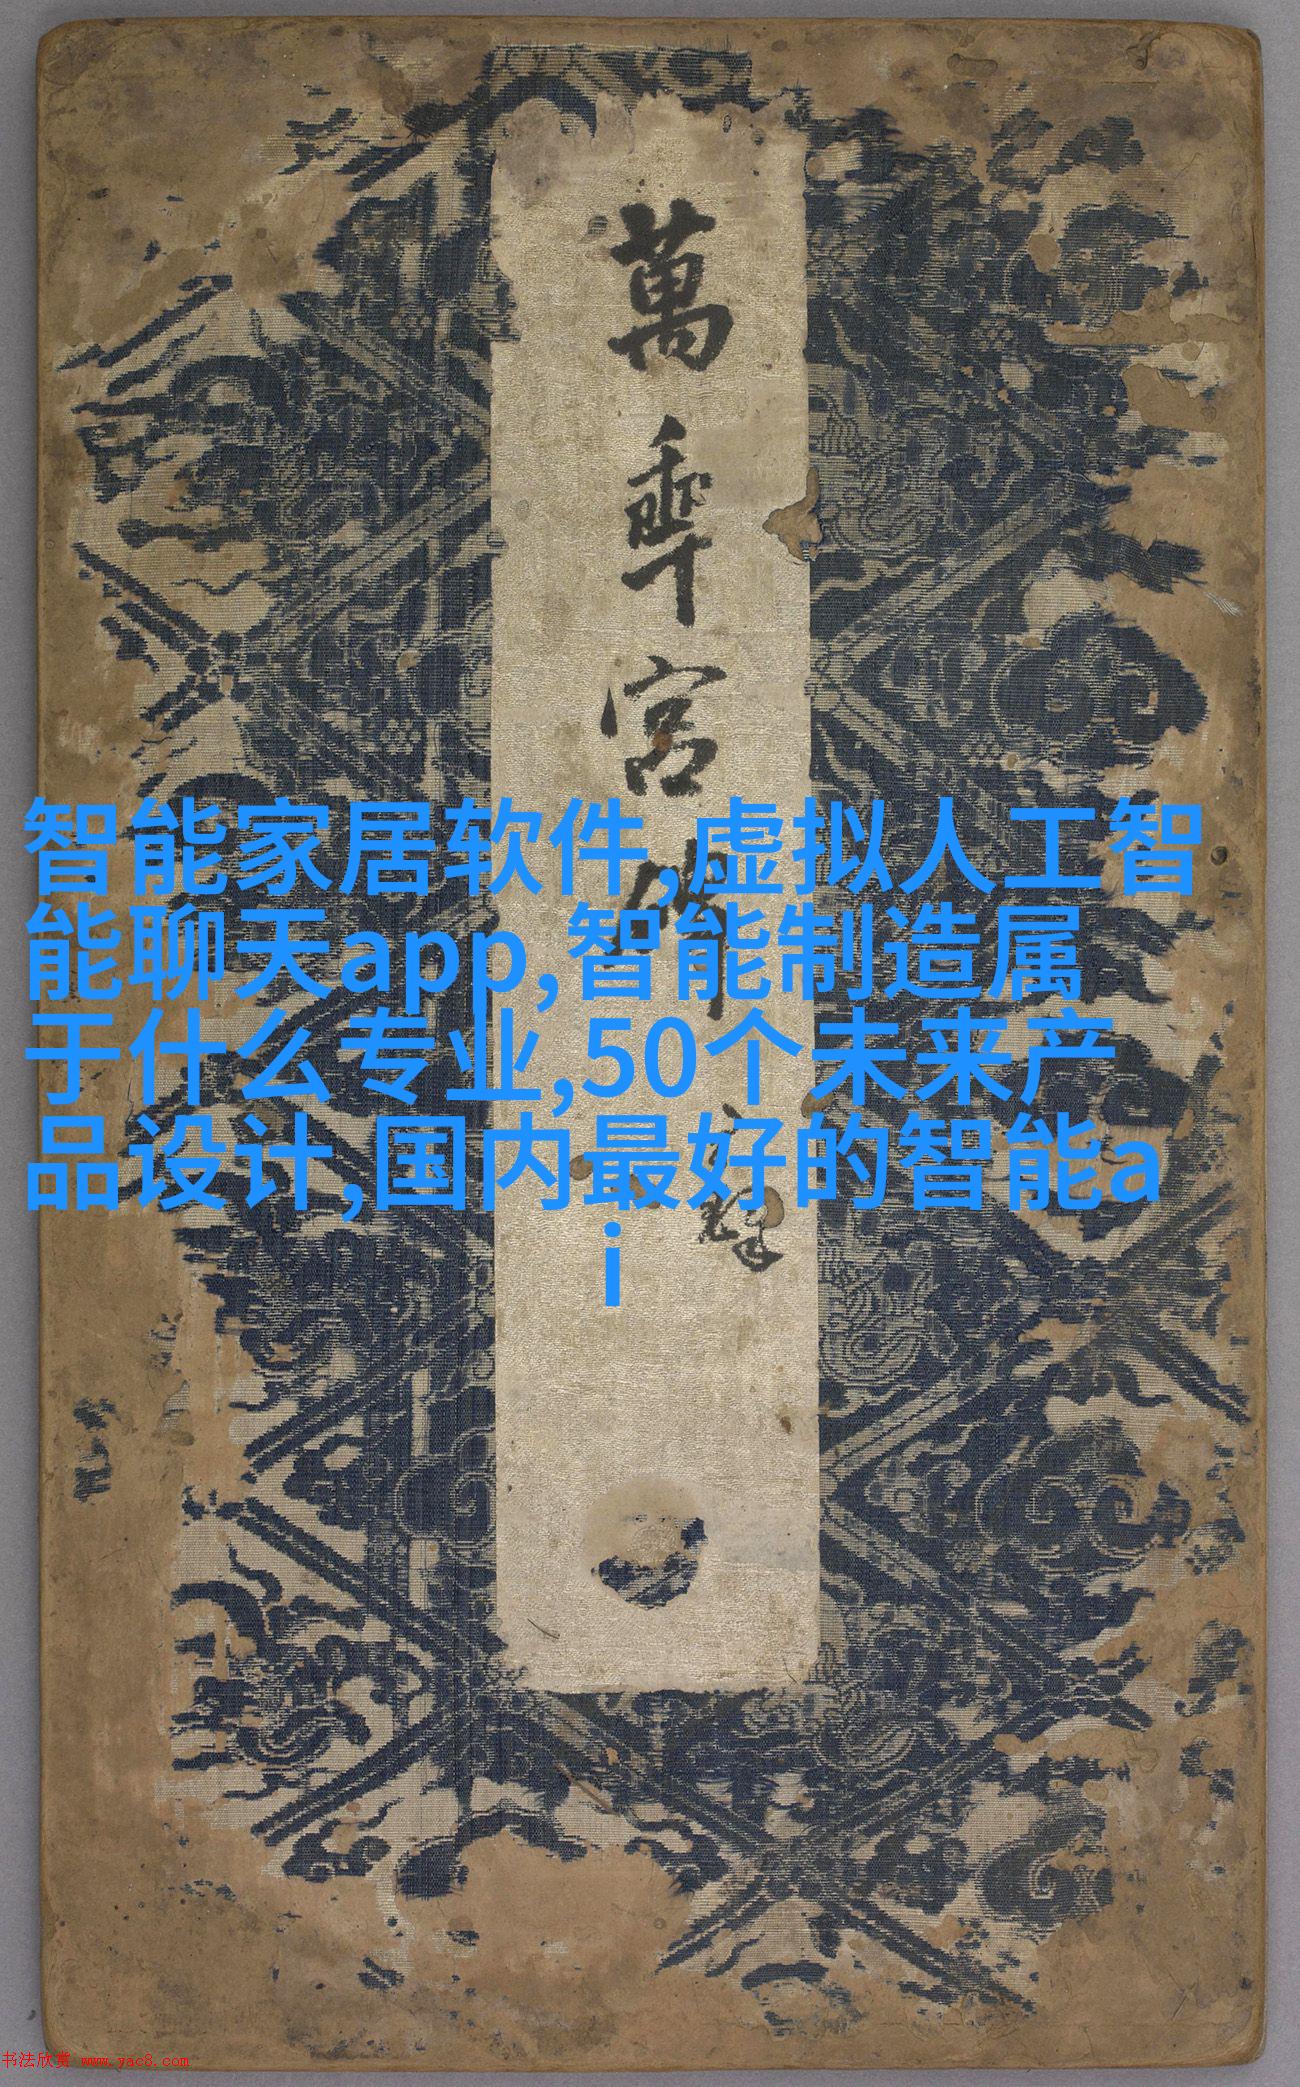 萬宮
智能家居软件,虚拟人工智
能聊天app,智能制造属
于什么专业,50个未来产
品设计,国内最好的智能a
i
书法欣赏 www.yac8.com